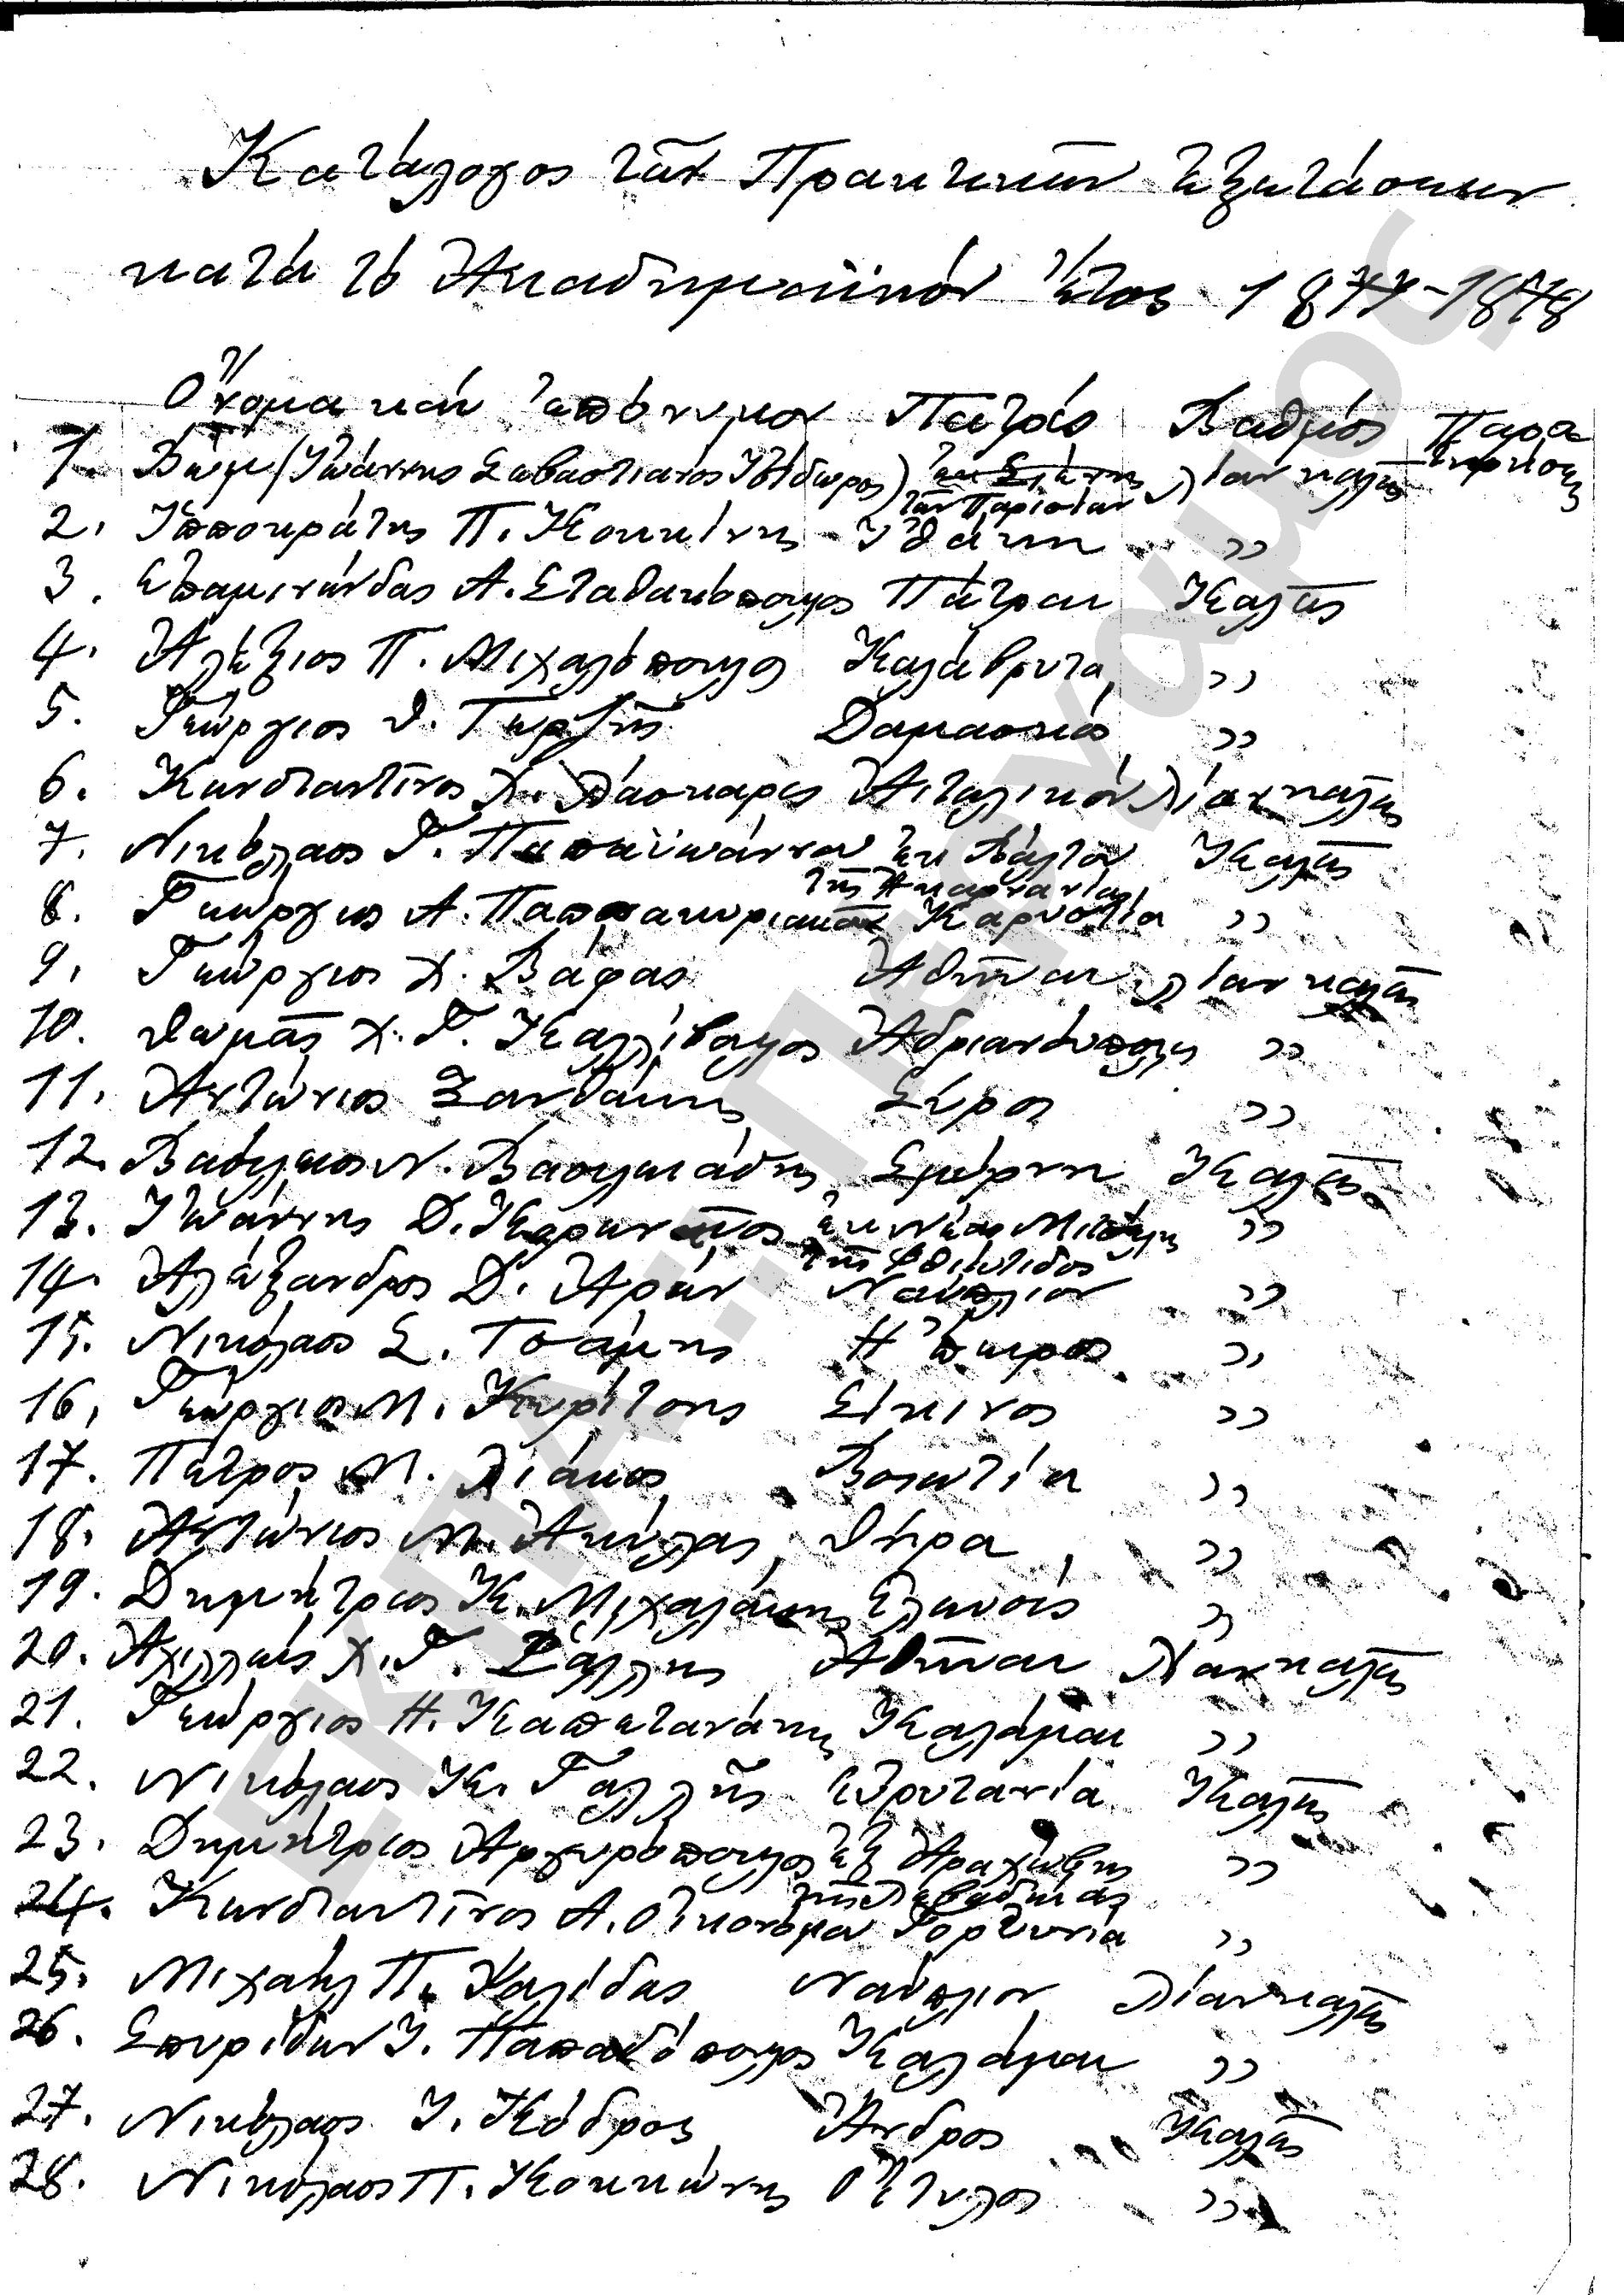 Κατάλογος τῶν Πρακτικῶν ἐξετάσεων
κατά τό Ἀκαδημαϊκόν ἔτος 1877-1878
Ὄνομα καί ἐπώνυμον Πατρίς Βαθμός Παρατηρήσεις
1. Βώμ (Ἰωάννης Σεβαστιανός Ἰσίδωρος) ἐκ λίαν καλῶς
τῶν Παρισίων
2. Ἱπποκράτης Π. Κοκκίνης Ἰθάκη ,,
3. Ἐπαμινώνδας Α. Σταθακόπουλος Πάτραι Καλῶς
4. Ἀλέξιος Π. Μιχαλόπουλος Καλάβρυτα ,,
5. Γεώργιος Θ. Τερζῆς Δαμασκός ,,
6. Κωνσταντῖνος Χ. Λάσκαρις Αἰτωλικόν λίαν καλῶς
7. Νικόλαος Γ. Παπαϊωάννου ἐκ Βάλτου Καλῶς
τῆς Ἀκαρνανίας
8. Γεώργιος Α. Παπακυριακοῦ Καρυστία ,,
9. Γεώργιος Χ. Βάφας Ἀθῆναι λίαν καλῶς
10. Θωμᾶς Χ. Γ. Καλλίβουλος Ἀδριανόπολις ,,
11. Ἀντώνιος Ξανθάκης Σύρος ,,
12. Βασίλειος Ν. Βασιλειάδης Σμύρνη Καλῶς
13. Ἰωάννης Δ. ἐκ Νέας Μιτζέλης ,,
τῆς Φθιώτιδος
14. Ἀλέξανδρος Δ. Ἀρών Ναύπλιον ,,
15. Νικόλαος Σ. Τσάμης Ἤπειρος ,,
16. Γεώργιος Μ. Κυρίτσης Σίκινος ,,
17. Πέτρος Μ. Λιάκος Βοιωτία ,,
18. Ἀντώνιος Μ. Ἀκύλας Θήρα ,,
19. Δημήτριος Κ. Μιχαλάκης Ἐλευσίς ,,
20. Ἀχιλλεύς Χ. Γ. Ράλλης Ἀθῆναι λίαν καλῶς
21. Γεώργιος Η. Καπετανάκης Καλάμαι ,,
22. Νικόλαος Κ. Γαλλῆς Εὐρυτανία Καλῶς
23. Δημήτριος Ἀργυρόπουλος ἐξ Ἀραχώβης ,,
τῆς Λεβαδείας
24. Κωνσταντῖνος Α. Οἰκονόμου Γορτυνία ,,
25. Μιχαήλ Π. Καλίδας Ναύπλιον λίαν καλῶς
26. Σπυρίδων Ι. Παπαδόπουλος Καλάμαι ,,
27. Νικόλαος Ι. Κόδρος Ἄνδρος Καλῶς
28. Νικόλαος Π. Κοκκώνης Οἴτυλος ,,
ΕΚΠΑ: Πέργαμος